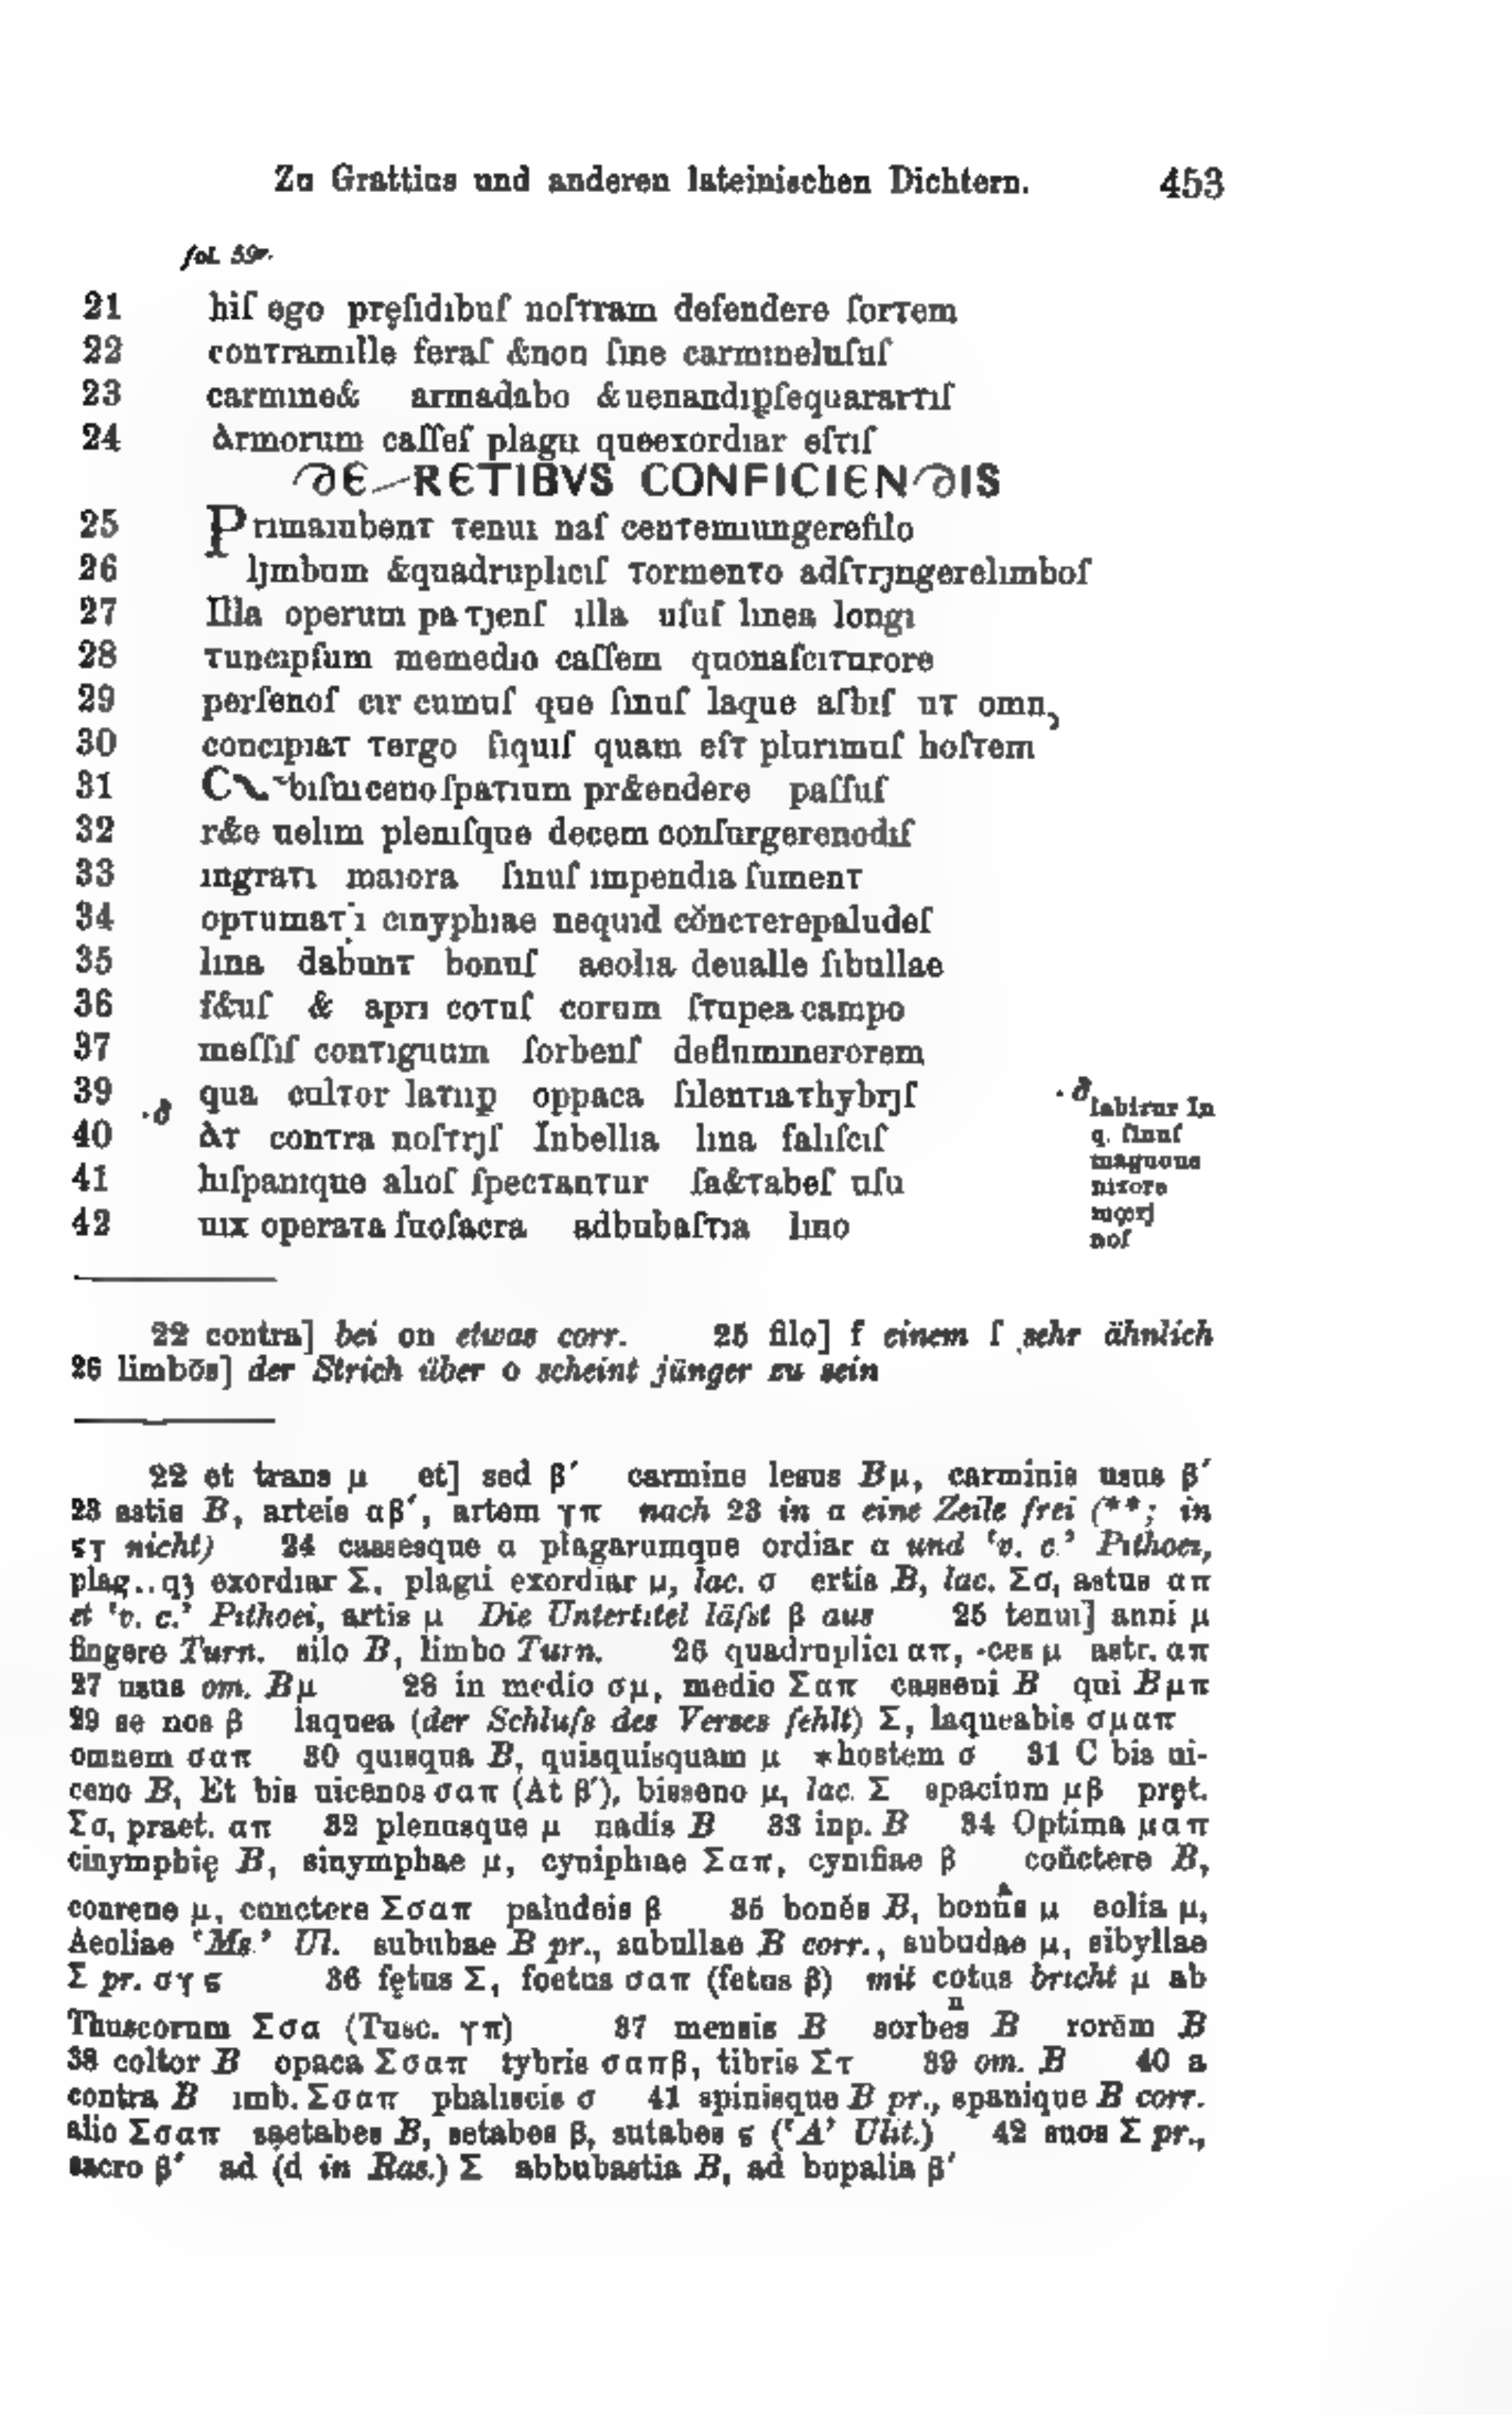 Zu Grattius und anderen lateinischen Dichtern. 453
fol. 59r.
21 hiſ ego pręſidıbuſ noſtram defendere ſortem
22 contramılle feraſ &non ſıne carmıneluſuſ
23 carmıne& armadabo &uenandıp̱ſequarartıſ
24 Armorum caſſeſ plagu queexordıar eſtıſ
DE RETIBVS CONFICIENDIS
25 Prımaıubent tenuı naſ centemıungerefilo
26 lȷmbum &quadruplıcıſ tormento adſtrȷngerelımboſ
27 Illa operum pa tȷenſ ılla uſuſ lınea longı
28 tuncıpſum memedıo caſſem quonaſcıturore
29 perſenoſ cır cumuſ que ſınuſ laque aſbıſ ut omn,
30 concıpıat tergo ſiquıſ quam eſt plurımuſ hoſtem
31 C bıſuıcenoſpatıum pr&endere paſſuſ
32 r&e uelım plenıſque decem conſurgerenodıſ
33 ıngratı maıora ſınuſ ımpendıa ſument
34 optumat ı cınyphıae nequıd cŏncterepaludeſ
35 lına dabunt bonuſ aeolıa deualle ſıbullae
36 f&uſ & aprı cotuſ corum ſtupea campo
37 meſſıſ contıguum ſorbenſ deflumınerorem
39 qua cultor latııp̱ oppaca ſılentıathybrȷſ
40 ·ð At contra noſtrȷſ Inbellıa lına falıſcıſ
41 hıſpanıque alıoſ ſpectantur ſa&tabeſ uſu
42 uıx operata ſuoſacra adbubaſtıa lıno
·ð labitur In
q. ſinuſ
magnoue
nitore
męrȷ
noſ
22 contra] bei on etwas corr. 25 filo] f einem ſ sehr ähnlich
26 limbōs] der Strich über o scheint jünger zu sein
22 et trans μ et] sed β′ carmine lesus Bμ, carminis usus β′
23 astis B, arteis αβ′, artem γπ nach 23 in α eine Zeile frei (**; in
ςτ nicht) 24 cassesque α plagarumque ordiar α und ‘v. c.’ Pıthoeı,
plag..qȝ exordıar Σ, plagii exordiar μ, lac. σ ertis B, lac. Σσ, astus απ
et ‘v. c.’ Pıthoei, artis μ Die Untertıtel läſst β aus 25 tenuı] anni μ
fingere Turn. silo B, limbo Turn. 26 quadruplicı απ, -ces μ astr. απ
27 usus om. Bμ 28 in medio σμ, medio Σαπ casseni B qui Bμπ
29 se nos β laquea (der Schluſs des Verses fehlt) Σ, laqueabis σμαπ
omnem σαπ 30 quisqua B, quisquisquam μ *hostem σ 31 C bis ui-
ceno B, Et bis uicenos σαπ (At β′), bisseno μ, lac. Σ spacium μβ pręt.
Σσ, praet. απ 32 plenusque μ nadis B 33 inp. B 34 Optima μαπ
cinymphię B, sinymphae μ, cyniphıae Σαπ, cynıfiae β con̄ctere B,
conrene μ, cunctere Σσαπ paludeis β 35 bonés B, bonus μ eolia μ,
Aeoliae ‘Ms.’ Ul. sububae B pr., subullae B corr., subudae μ, sibyllae
Σ pr. σγς 36 fętus Σ, foetus σαπ (fetus β) mit cotus brıcht μ ab
Thuscorum Σσα (Tusc. γπ) 37 mensis B sorbeⁿs B rorēm B
38 coltor B opaca Σσαπ tybris σαπβ, tibris Στ 39 om. B 40 a
contra B ımb. Σσαπ phalıscis σ 41 spinisque B pr., spanique B corr.
alio Σσαπ sąetabes B, setabes β, sutabes ς (‘A’ Ulit.) 42 suos Σ pr.,
sacro β′ ad (d in Ras.) Σ abbubastia B, ad bupalia β′